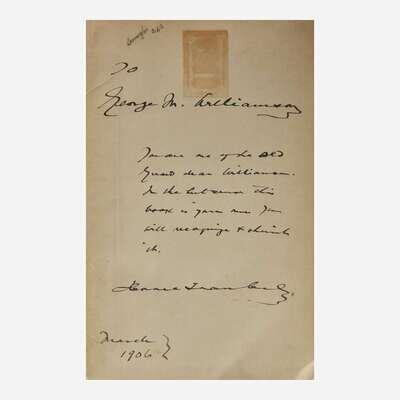 To
George M. Williamson
You are one of the old
Guard dear Williamson.
In the
this
book is yours
You
will recognize & cherish
it.
Horace Traubel
March
1906